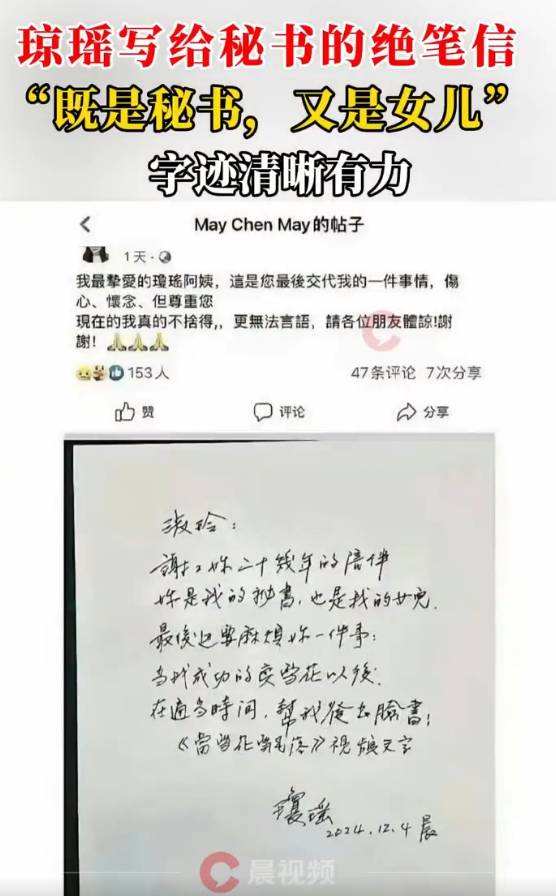 琼瑶写给秘书的绝笔信
“既是秘书，又是女儿”
字迹清晰有力
May Chen May的帖子
1天·
我最摯愛的瓊瑤阿姨，這是您最後交代我的一件事情，傷
心、懷念、但尊重您
現在的我真的不捨得,，更無法言語，請各位朋友體諒!謝
謝！
153人
47条评论 7次分享
赞 评论 分享
淑玲：
謝謝妳二十幾年的陪伴
妳是我的秘書，也是我的女兒。
最後還要麻煩妳一件事：
當我成功的變雪花以後，
在適當時間，幫我發去臉書！
《當雪花飄落》視頻文字
瓊瑤
2024.12.4 晨
晨视频